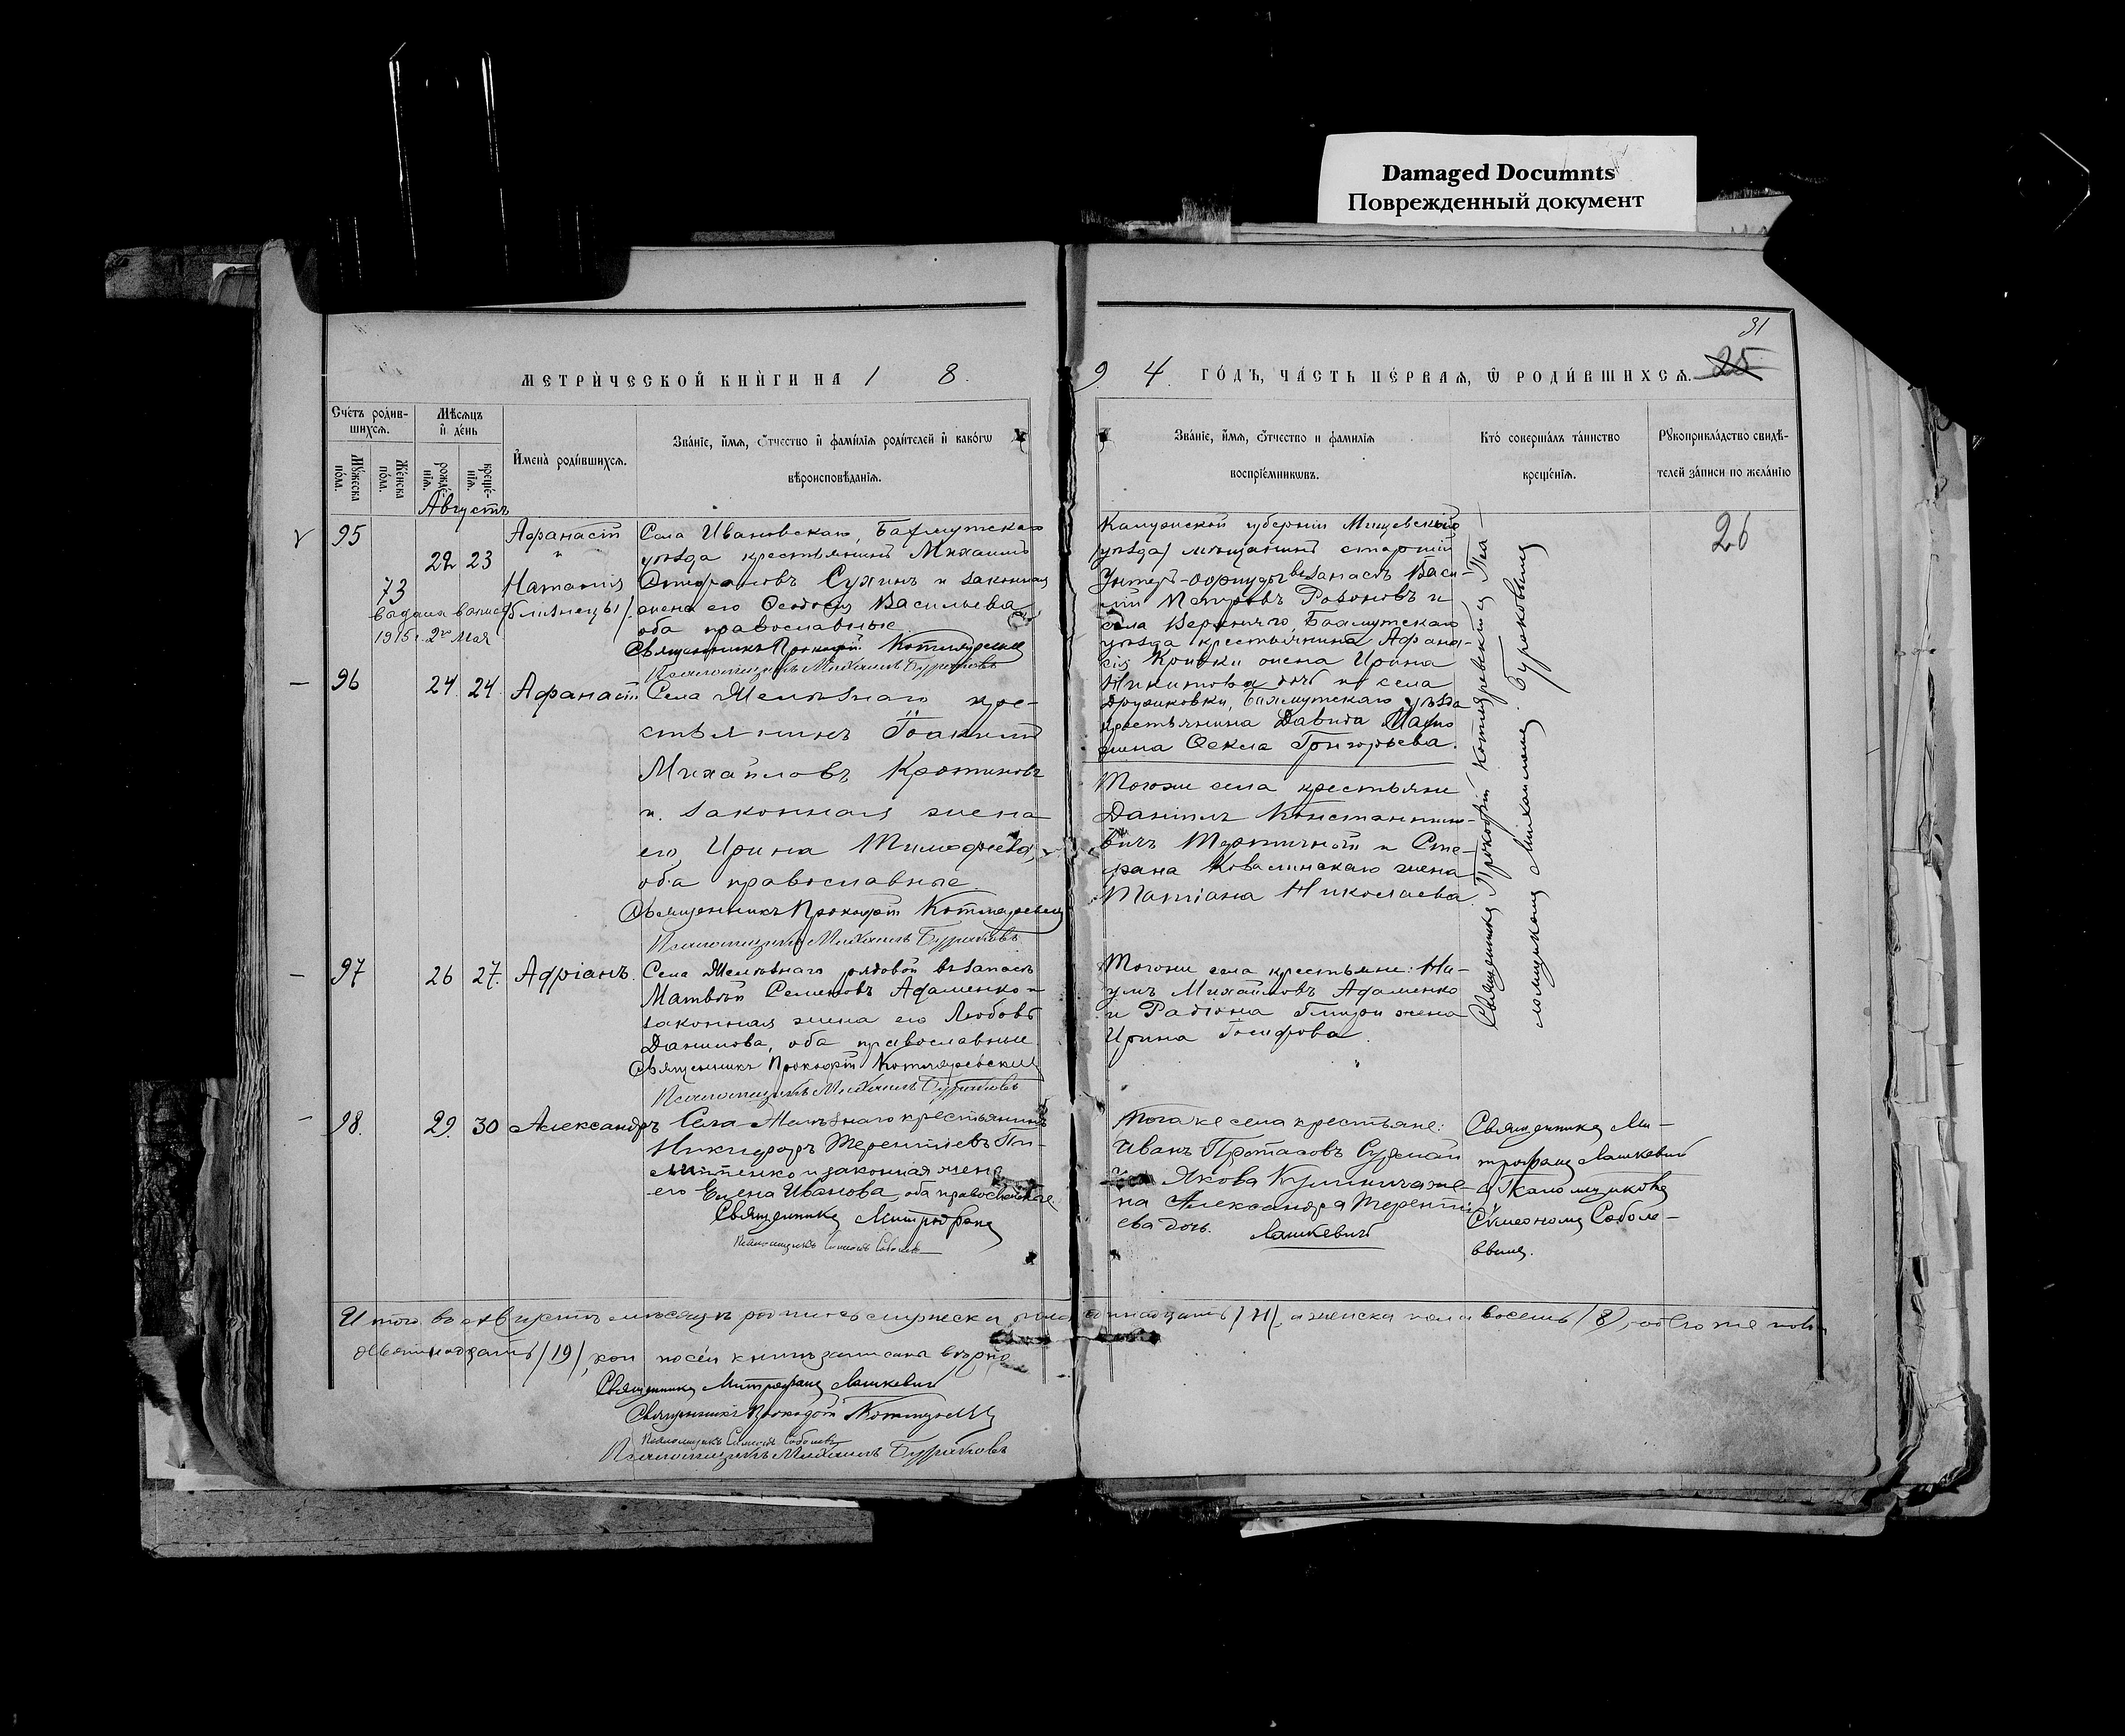 Damaged Documnts
Поврежденный документ
31
25
МЕТРИ́ЧЕСКОЙ КНИ́ГИ НА 1 8
9 4 ГО́ДЪ, ЧА́СТЬ ПЕ́РВАЯ, Ѿ РОДИ́ВШИХСѦ.
Сче́тъ роди́в-
шихсѧ.
Мꙋ́жеска по́ла.
Же́нска по́ла.
Мѣ́сѧцъ
и҆ де́нь
рожде́-
нїѧ.
креще́-
нїѧ.
И҆мена̀ роди́вшихсѧ.
Зва́нїе, и҆́мѧ, ѻ҆́тчество и҆ фамі́лїѧ роди́телей и҆ како́гѡ
вѣроисповѣ́данїѧ.
Зва́нїе, и҆́мѧ, ѻ҆́тчество и фамилїѧ
воспрїе́мникѡвъ.
Кто̀ соверша́лъ та́инство
креще́нїѧ.
Рꙋкоприкла́дство свидѣ́-
телей за́писи по жела́нїю
Августъ
95
73
22 23
Афанасій
и
Наталія
(близнецы)
1915 г. 2го Мая
Села Ивановскаго, Бахмутскаго
уѣзда крестьянинъ Михаилъ
Сухинъ и законная
жена его Ѳеодосія Васильева
оба православные
Священникъ Прокофій Котляревскій
Псаломщикъ Михаилъ Буряковъ
Калужской губерніи Мещевскаго
уѣзда мѣщанинъ старшій
Унтеръ-офицеръ въ запасѣ Васи-
лій Петровъ и
села Верхняго, Бахмутскаго
уѣзда крестьянина Афана-
сія Кривки жена Ирина
Никитова и села
Дружковки, Бахмутскаго уѣзда
крестьянина Давида
жена Ѳекла Григорьева.
Священникъ Прокофій Котляревскій
Михаиломъ Буряковымъ
26
96
24 24
Афанасій
Села Желѣзнаго кре-
стьянинъ Іоакимъ
Михайловъ
и законная жена
его Ирина Тимофеева,
оба православные
Священникъ Прокофій Котляревскій
Псаломщикъ Михаилъ Буряковъ
Тогоже села крестьяне
Даніилъ Константино-
вичъ и Сте-
фана Ковалинскаго жена
Татіана Николаева.
97
26 27.
Адріанъ.
Села Желѣзнаго рядовой въ запасѣ
Матвѣй Семеновъ Адаменко и
законная жена его Любовь
Данилова, оба православные
Священникъ Прокофій Котляревскій
Псаломщикъ Михаилъ Буряковъ
Тогоже села крестьяне: На-
умъ Михайловъ Адаменко
и Радіона жена
Ирина Іосифова.
98.
29. 30
Александръ
Села Желѣзнаго крестьянинъ
Никифоръ Терентіевъ Пи-
липенко и законная жена
его Елена Иванова, оба православные.
Священникъ Митрофанъ
Лашкевичъ
Псаломщикъ Симеонъ Соболевъ
Тогоже села крестьяне:
Иванъ Протасовъ
Якова же-
на Александра Терентi-
ева дочь.
Священникъ Ми-
трофанъ Лашкевич
Симеономъ Соболе-
вымъ.
Итого въ августѣ мѣсяцѣ родилось мужеска пола одинадцать (11), а женска пола восемь (8), обоего же пола
девятнадцать (19), кои по сей книгѣ записаны вѣрно
Священникъ Митрофанъ Лашкевич
Священникъ Прокофій
Псаломщикъ Симеонъ Соболевъ
Псаломщикъ Михаилъ Буряковъ